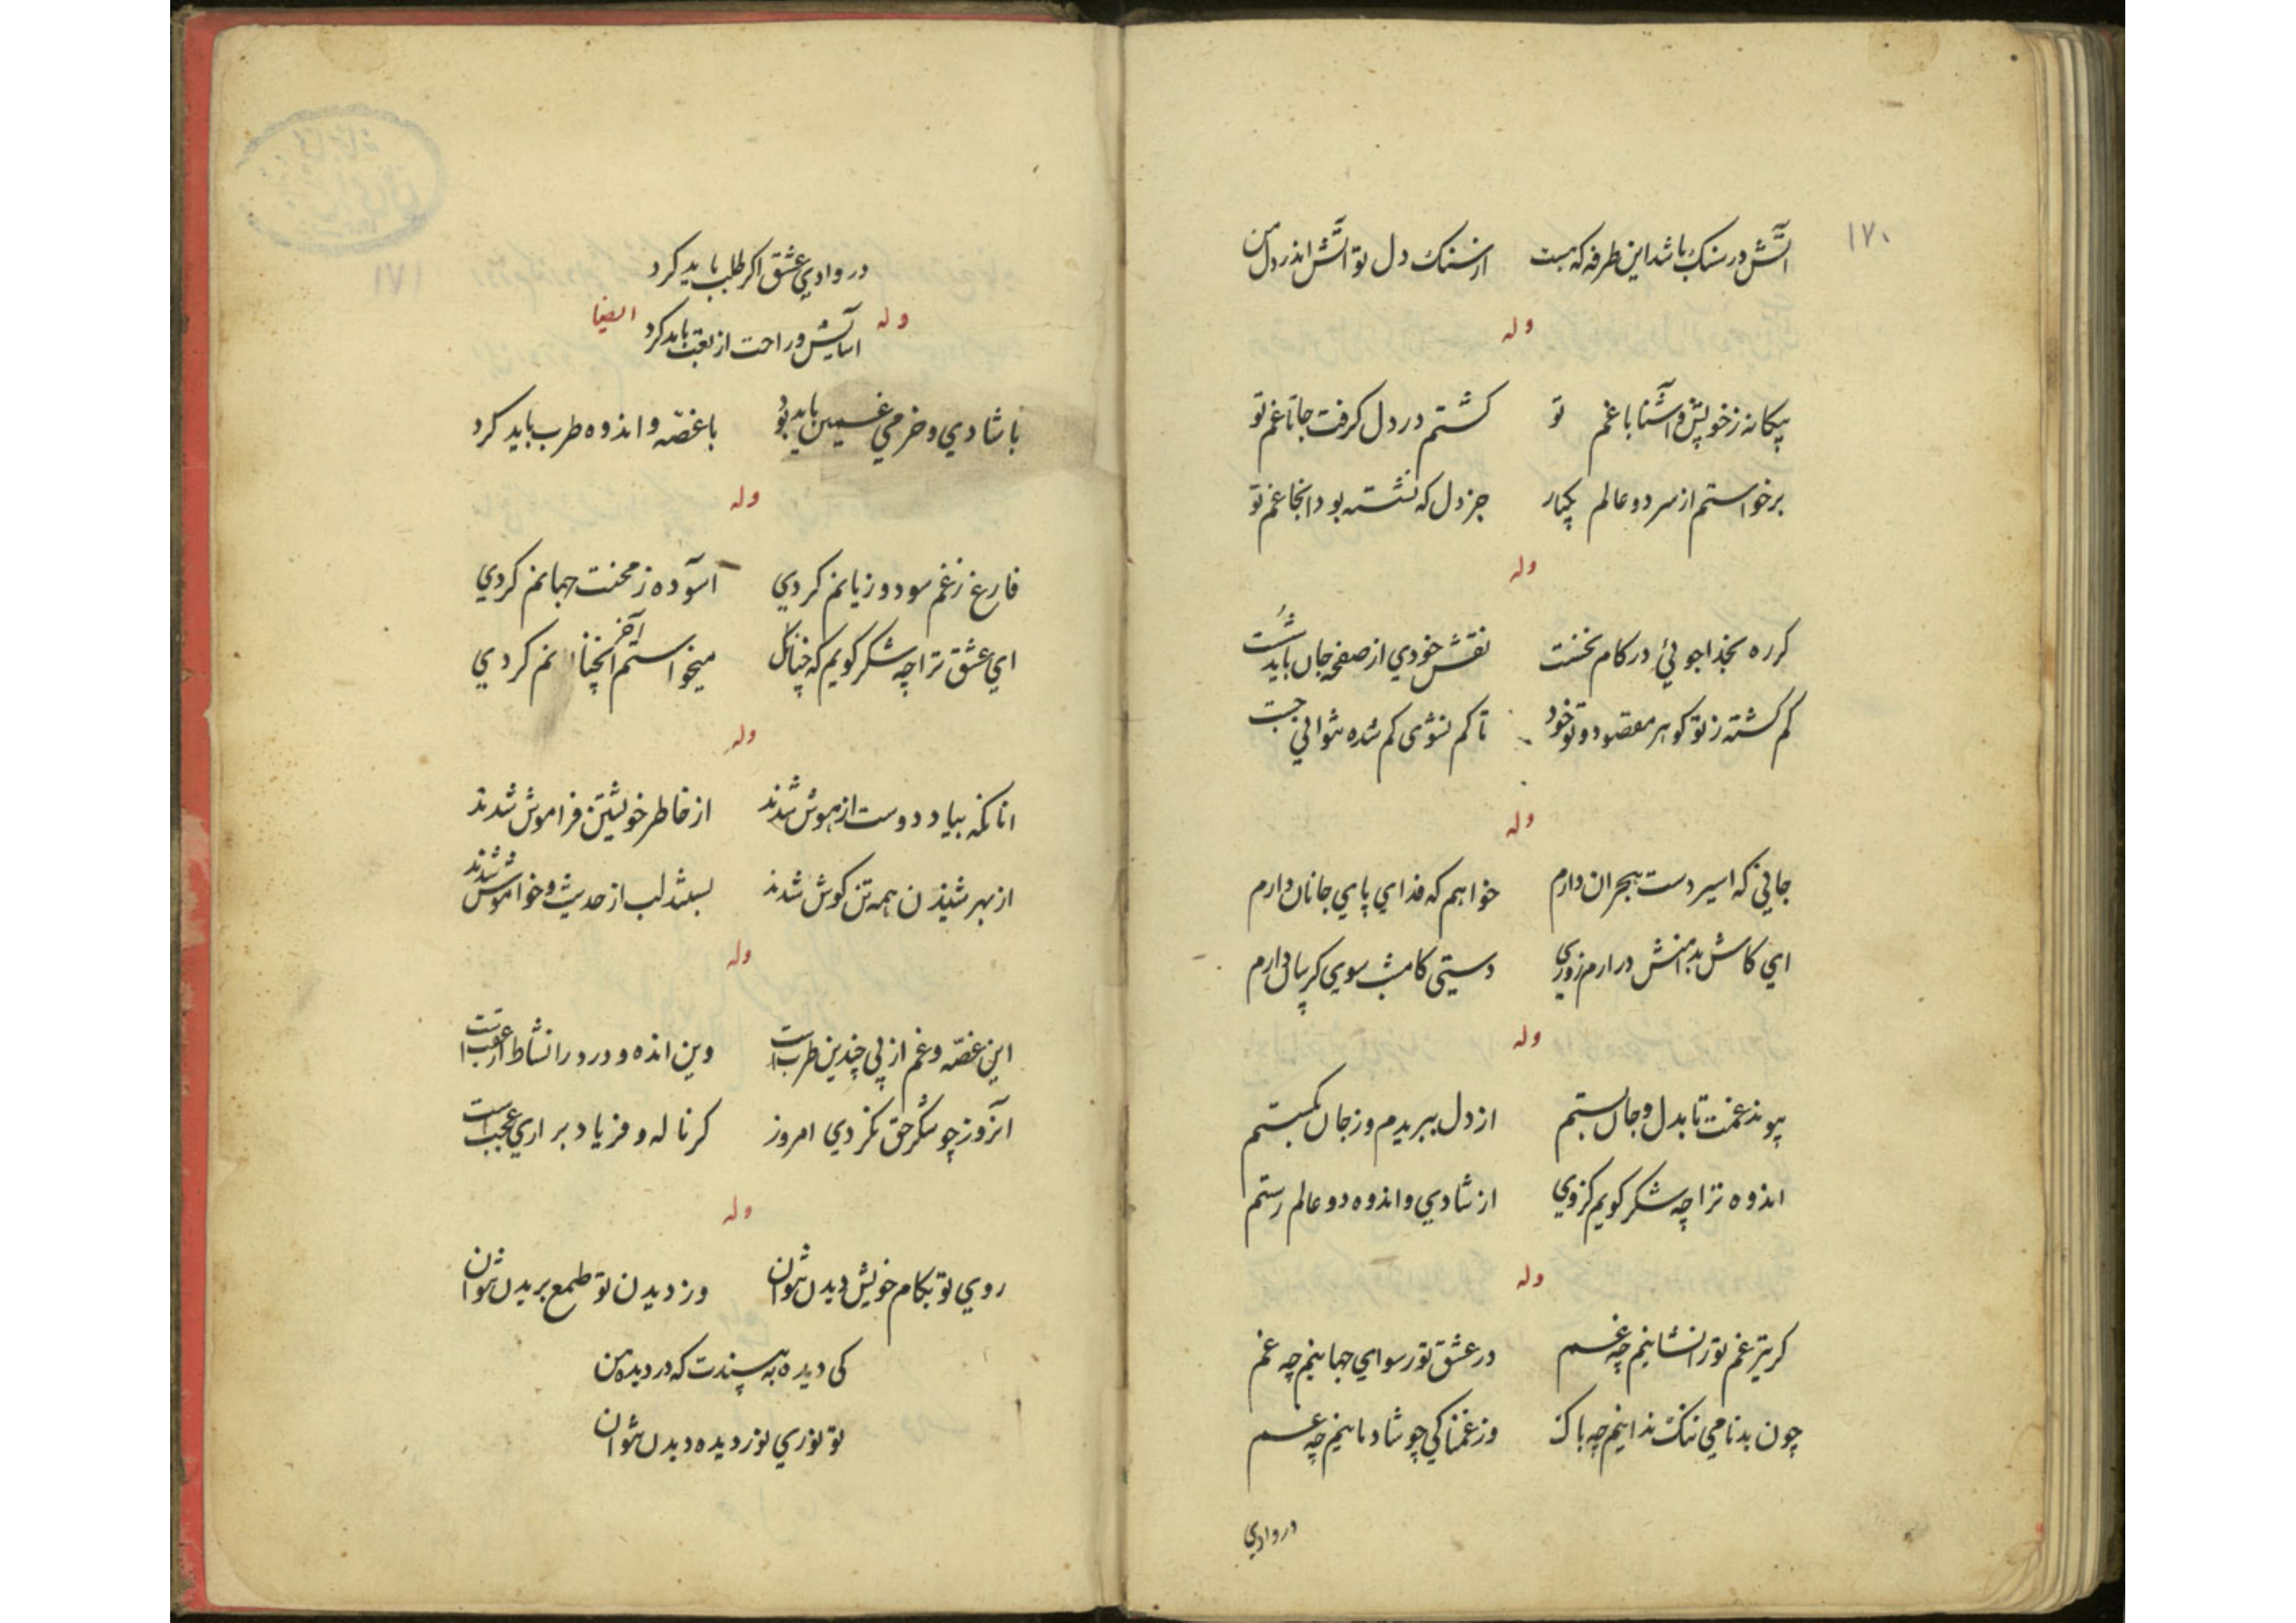 ١٧٠
آتش در سنک باشد این طرفه که هست از سنک دل تو آتش اندر دل من
وله
بیکانه ز خویش و آشنا با غم تو کشتم در دل کرفت جا تا غم تو
برخواستم از سر دو عالم یکبار جز دل که نشسته بود آنجا غم تو
وله
کر ره بخدا جوئی در کام نخست نقش خودی از صفحه جان باید شست
کم کشته ز تو کوهر مقصود و تو خود تا کم نشوی کم شده نتوانی جست
وله
جانی که اسیر دست هجران دارم خواهم که فدای پای جانان دارم
ای کاش بدامنش در ارم روزی دستی که سوی کریبان دارم
وله
پیوند غمت تا بدل و جان بستم از دل ببریدم و ز جان بکسستم
اندوه ترا چه شکر کویم کز وی از شادی و اندوه دو عالم رستم
وله
کر تیر غم تو را نشانیم چه غم در عشق تو رسوای جهانیم چه غم
چون بدنامی ننک ندانیم چه باک وز غمناکی چو شادمانیم چه غم
در وادی
١٧١
در وادی عشق اکر طلب باید کرد
وله ایضا
آسایش و راحت از تعب باید کرد
با شادی و خرمی غمین باید بود با غصه و اندوه طرب باید کرد
وله
فارغ ز غم سود و زیانم کردی آسوده ز محنت جهانم کردی
ای عشق ترا چه شکر کویم که چنانک میخواستم آخر آنچنانم کردی
وله
آنانکه بیاد دوست از هوش شدند از خاطر خویشتن فراموش شدند
از بهر شنیدن همه تن کوش شدند بستند لب از حدیث و خواموش شدند
وله
این غصه و غم از پی چندین طرب است وین انده و درد را نشاط از عقب است
آنروز چو شکر حق نکردی امروز کر ناله و فریاد بر اری عجب است
وله
روی تو بکام خویش دیدن نتوان وز دیدن تو طمع بریدن نتوان
کی دیده به بیندت که در دیده من
تو نوری نور دیده دیدن نتوان